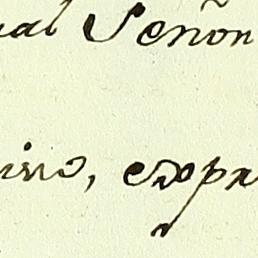 ual Señor
ivo, expr